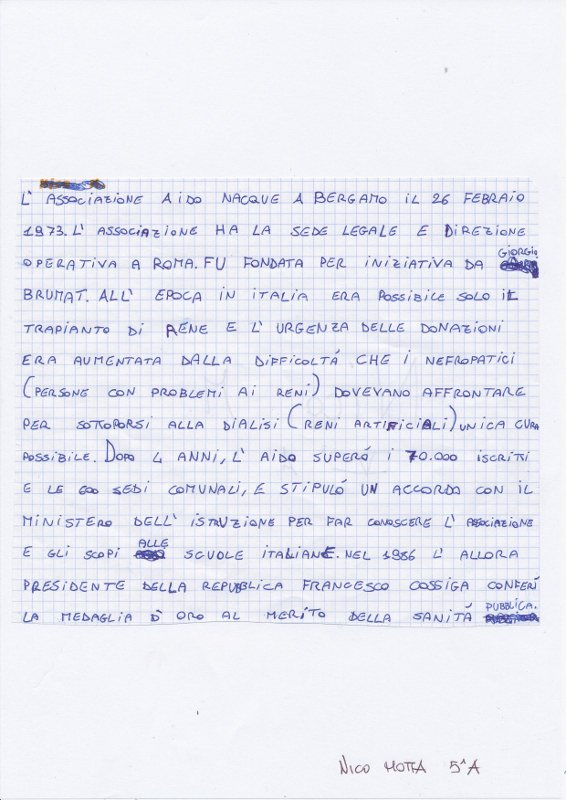 L' ASSOCIAZIONE AIDO NACQUE A BERGAMO IL 26 FEBRAIO
1973. L' ASSOCIAZIONE HA LA SEDE LEGALE E DIREZIONE
OPERATIVA A ROMA. FU FONDATA PER INIZIATIVA DA GIORGIO
BRUMAT. ALL' EPOCA IN ITALIA ERA POSSIBILE SOLO IL
TRAPIANTO DI RENE E L' URGENZA DELLE DONAZIONI
ERA AUMENTATA DALLA DIFFICOLTÁ CHE I NEFROPATICI
(PERSONE CON PROBLEMI AI RENI) DOVEVANO AFFRONTARE
PER SOTTOPORSI ALLA DIALISI (RENI ARTIFICIALI) UNICA CURA
POSSIBILE. DOPO 4 ANNI, L' AIDO SUPERÓ I 70.000 ISCRITTI
E LE 600 SEDI COMUNALI, E STIPULÓ UN ACCORDO CON IL
MINISTERO DELL' ISTRUZIONE PER FAR CONOSCERE L' ASSOCIAZIONE
E GLI SCOPI ALLE SCUOLE ITALIANE. NEL 1986 L' ALLORA
PRESIDENTE DELLA REPUBBLICA FRANCESCO COSSIGA CONFERÍ
LA MEDAGLIA D' ORO AL MERITO DELLA SANITÁ PUBBLICA.
NICO MOTTA 5^A